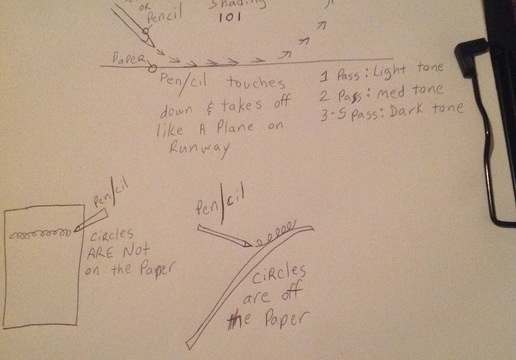 OR
Pencil
Shading
101
PAPER
Pen/cil touches
down & takes off
like A Plane on
Runway
1 Pass: Light tone
2 Pass: med tone
3-5 Pass: Dark tone
Pen/cil
circles
ARE Not
on the Paper
Pen/cil
circles
are off
the Paper